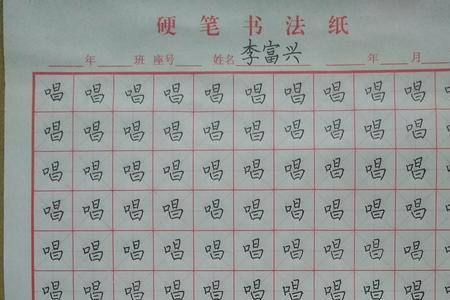 硬笔书法纸
年 班 座号 姓名 李富兴 年 月
唱 唱 唱 唱 唱 唱 唱 唱 唱 唱 唱
唱 唱 唱 唱 唱 唱 唱 唱 唱 唱 唱
唱 唱 唱 唱 唱 唱 唱 唱 唱 唱 唱
唱 唱 唱 唱 唱 唱 唱 唱 唱 唱 唱
唱 唱 唱 唱 唱 唱 唱 唱 唱 唱 唱
唱 唱 唱 唱 唱 唱 唱 唱 唱 唱